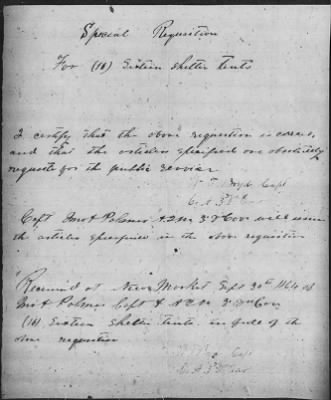 Special Requsition
For (16) Sixteen Shelter tents
I certify that the above requsition is correct,
and that the articles specified are absolutely
requsite for the public service
Capt
Capt Jno A 3d Cav will issue
the articles specified in the above requsition
Received at New Market Sept 30th 1864 of
Jno A Capt & A.Q.M. 3d Cav
(16) Sixteen Shelter tents in full of the
above requsition
Capt